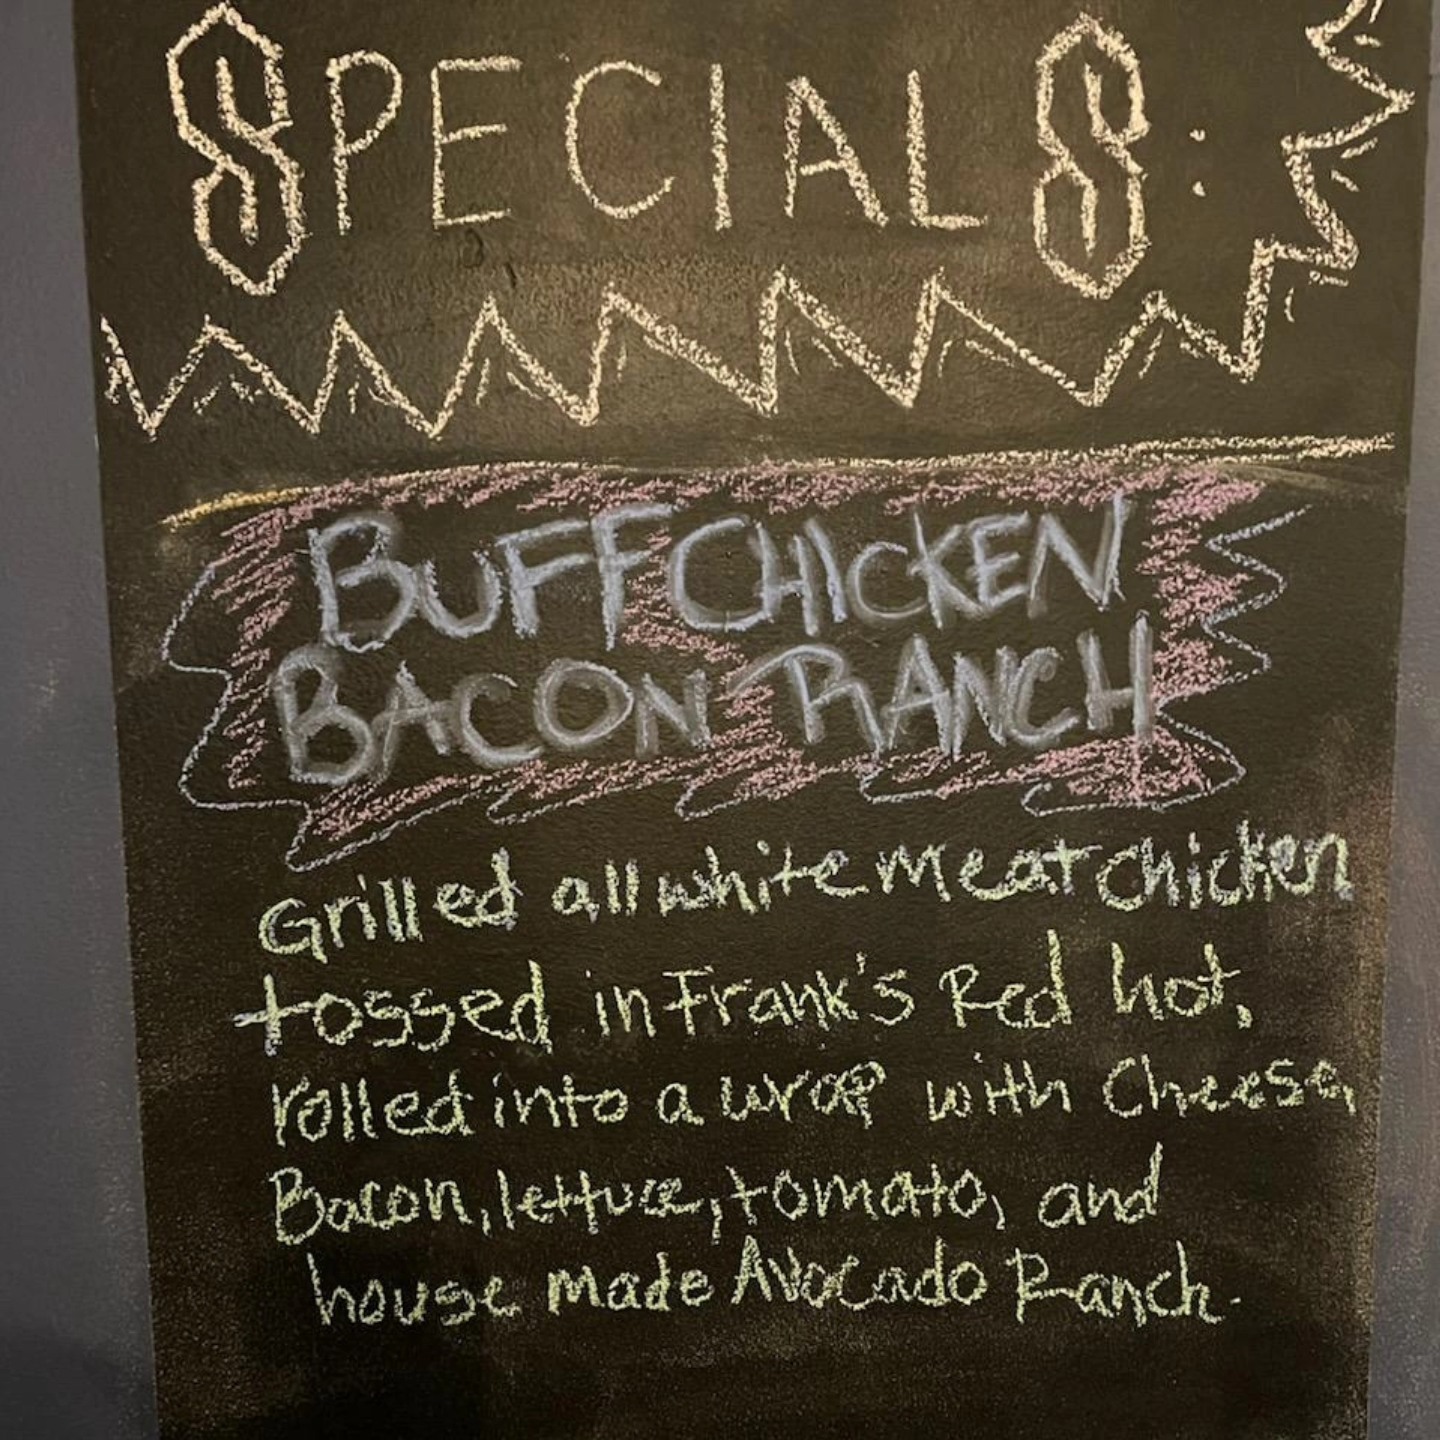 SPECIALS:
BUFF CHICKEN
BACON RANCH
Grilled all white meat chicken
tossed in Frank's Red hot,
rolled into a wrap with Cheese,
Bacon, lettuce, tomato, and
house made Avocado Ranch.